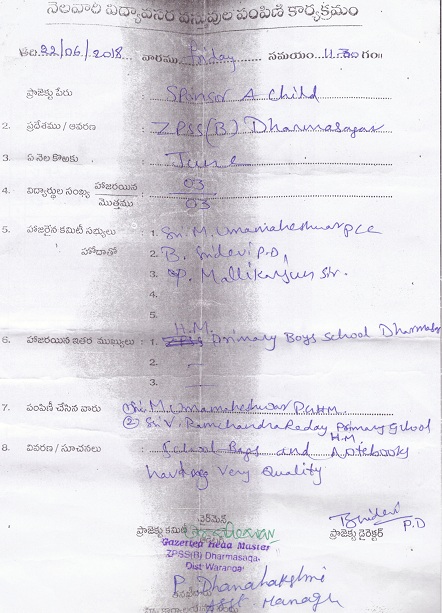 నెలవారీ విద్యావసర వస్తువుల పంపిణీ కార్యక్రమం
తేది. 22/06/2018. వారము Friday సమయం. 11.
ప్రాజెక్టు పేరు : Sponsor A Child
2. ప్రదేశము / ఆవరణ : ZPSS(B) Dharmasagar
3. ఏ నెల కొఱకు : June
4. విద్యార్థుల సంఖ్య హాజరయిన : 03
మొత్తము 03
5. హాజరైన కమిటీ సభ్యులు : 1. Sri. M. Umamaheshwar pcc
హోదాతో 2. B. Sridevi P.D
3. P. Mallikarjun Sir.
4.
5.
H.M.
6. హాజరయిన ఇతర ముఖ్యులు : 1. Primary Boys School
2. —
3. —
7. పంపిణీ చేసిన వారు : ① Sri. M. Umamaheshwar
② Sri V. Ramchandra Reddy Primary School
H.M.
8. వివరణ / సూచనలు : School Bags and Notebooks
Very Quality
ఛైర్మెన్
ప్రాజెక్టు కమిటీ
ప్రాజెక్టు డైరెక్టర్ P.D
Gazetted Head Master
ZPSS(B) Dharmasagar
Dist Warangal
P. Dhanalakshmi